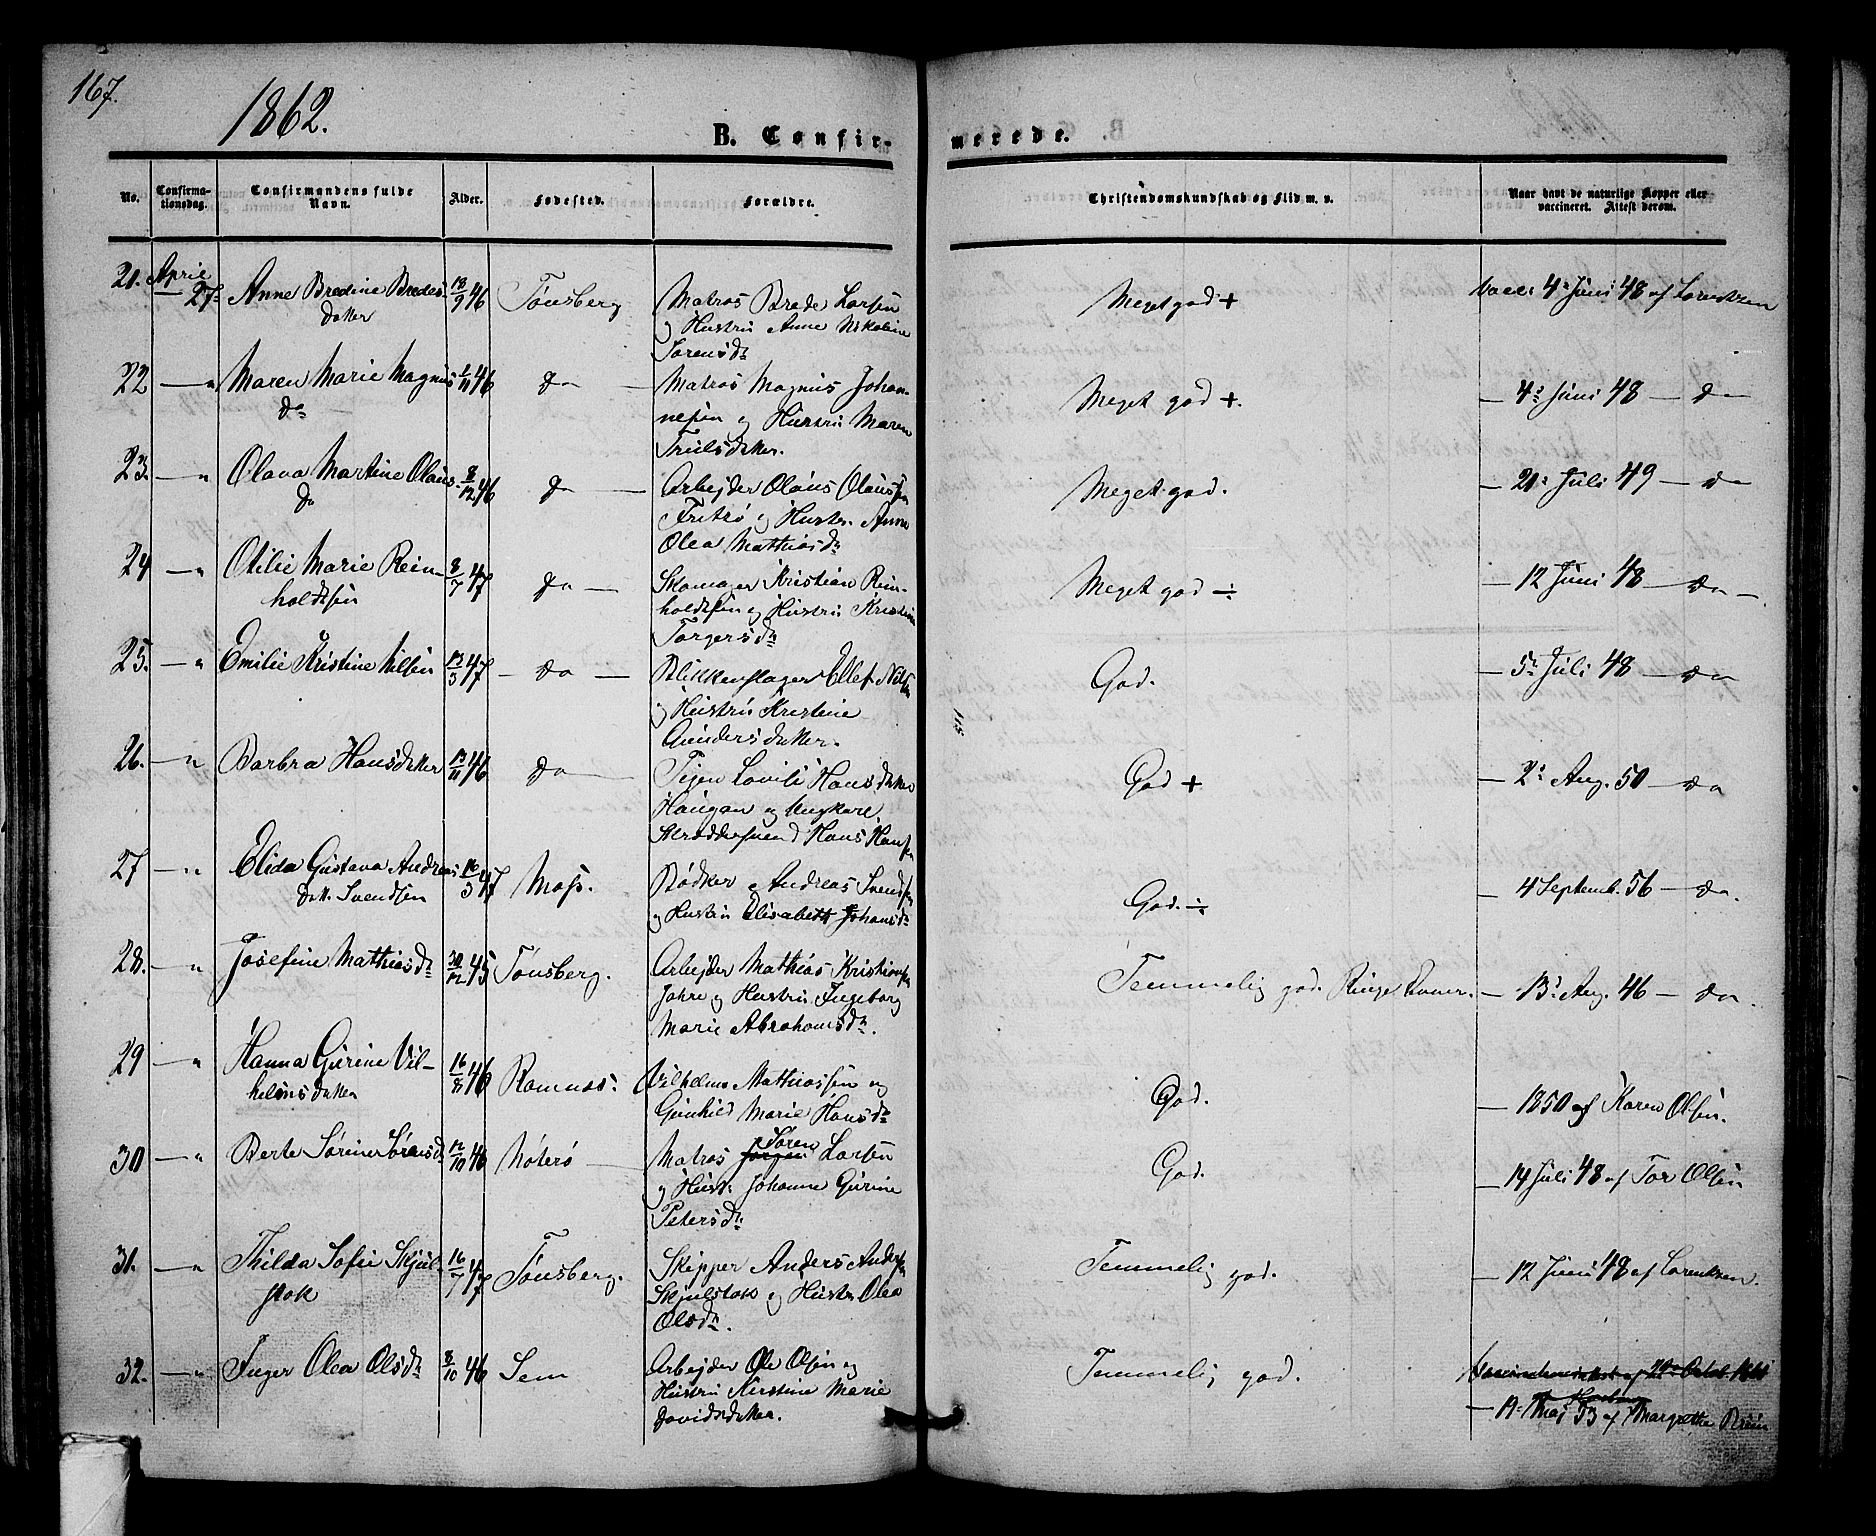 167.
1862.
B. Confir-
merede.
No.
Confirma-
tionsdag.
Confirmandens fulde
Navn.
Alder.
Fødested.
Forældre.
Christendomskundskab og Flid m. v.
Naar havt de naturlige Kopper eller
vaccineret. Attest derom.
21. April 27. Anne Bredine Bredes- 18/9 46 Tønsberg Matros Brede Larsen Meget god + Vacc: 4de Juni 48 af Lorentzen
datter og Hustru Anne Nikoline
Sørensdr
22 — " Maren Marie Magnus 1/11 46 do — Matros Magnus Johan- Meget god +. — 4de Juni 48 — do —
do nesen og Hustru Maren
Trulsdatter.
23. — " Olava Martine Olaus- 8/12 46 do — Arbejder Olaus Olaussen Meget god. — 21. Juli 49 — do
do Fritsø og Hustr. Anne
Olea Mathiasdr
24 — " Otilie Marie Rein- 8/7 47 do — Skomager Kristian Rein- Meget god ÷ — 12 Juni 48 — do —.
holdtsen holdtsen og Hustru Kristine
Torgersdr
25. — " Emilie Kristine Nilsen 13/3 47 — do — Blikkenslager Ellef Nilsen God. — 5te Juli 48 — do
og Hustru Kristine
Gundersdatter.
26. — " Barbra Hansdatter 13/11 46 do — Pigen Lovise Hansdatter God + — 2. Aug. 50 — do
Haugan og Ungkarl
Skræddersvend Hans Hansen
27 — " Elida Gustava Andreas 16/3 47 Moss. Bødker Andreas Svendsen God. ÷ — 4 Septemb. 56 — do.
datt. Svendsen og Hustru Elisabeth Johansdr
28. — " Josefine Mathiasdr 30/12 45 Tønsberg. Arbejder Mathias Kristiansen Temmelig god. Ringe Evner. — 13. Aug. 46 — do.
Jahre og Hustru Ingeborg
Marie Abrahamsdr.
29 — " Hanna Gurine Vil- 16/8 46 Ramnæs. Vilhelm Mathiassen og God. — 1850 af Karen Olsen.
helmsdatter Gunhild Marie Hansdr
30 — " Berte Sørine Sørensd 12/10 46 Nøterø — Matros Jørgen Søren Larsen God. — 14 Juli 48 af Tor Olsen
og Hustr. Johanne Gurine
Petersdr.
31. — " Thilda Sofie Skjul- 16/7 47 Tønsberg. Skipper Anders Andersen Temmelig god. — 12 Juni 48 af Lorentzen.
stok Skjulstok og Hustr Olea
Olsdr.
32. — " Inger Olea Olsdr 8/10 46 Sem Arbejder Ole Olsen og Temmelig god. Vaccinationsattest af 20 Octob. 1861
Hustru Kirstine Marie — 19. Maj 53 af Margrethe Bruun
Davidsdatter.